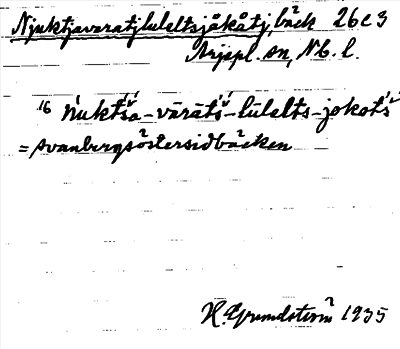 Njuktjavaratjluleltsjåkåtj, bäck 26e3
Arjepl. sn, Nb. l.
16 ńukt́śa-vārāt́ś-lūlelts-jokot́ś
= Svanbergsöstersidbäcken
H. Grundström 1935